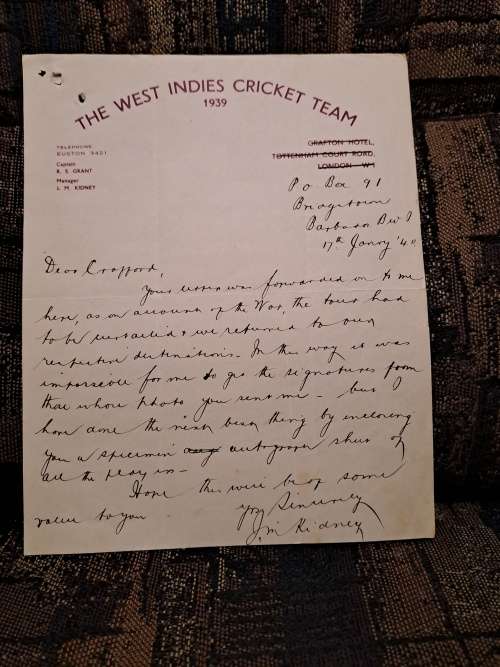 THE WEST INDIES CRICKET TEAM
1939
TELEPHONE
EUSTON 3421
Captain
R. S. GRANT
Manager
L. M. KIDNEY
GRAFTON HOTEL,
TOTTENHAM COURT ROAD,
LONDON W1
P O Box 91
Bridgetown
Barbados B W I
17th Janry '40
Dear Crafford,
Your letter was forwarded on to me
here, as on account of the War, the tour had
to be curtailed & we returned to our
respective destinations. In this way it was
impossible for me to get the signatures from
those whose photo you sent me - but I
have done the next best thing by enclosing
you a specimen autograph sheet of
all the players -
Hope this will be of some
value to you
Yrs Sincerely
J. M. Kidney